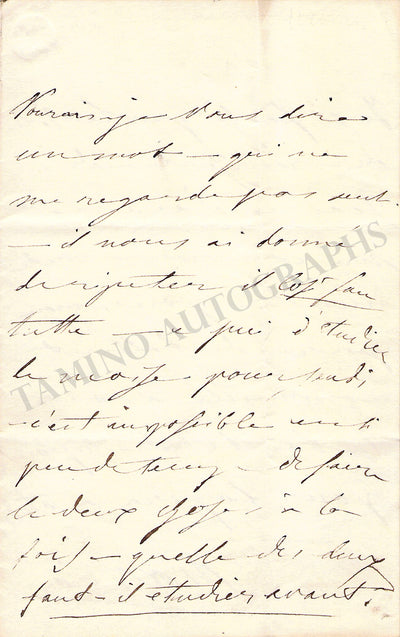 Pourais je Vous dire
un mot – qui ne
me regarde pas seul.
– il nous a donné
de repeter il Cosi fan
tutte – et puis d'étudier
le moise pour lundi,
c'est impossible en si
peu de temps – de faire
les deux choses à la
fois – quelle des deux
faut-il étudier avant?
TAMINO AUTOGRAPHS